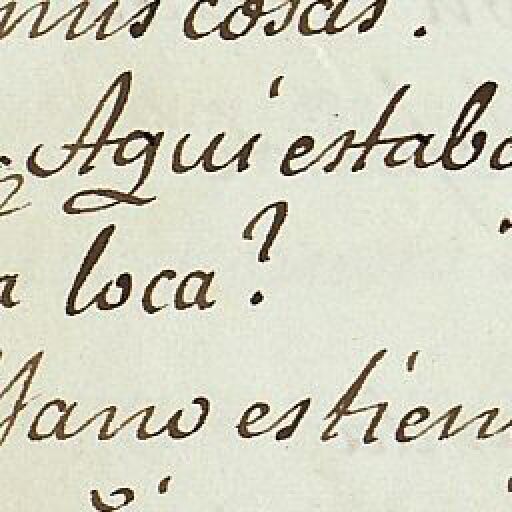 mus cosas.
Aqui estaba
a loca?
Mano es tiem